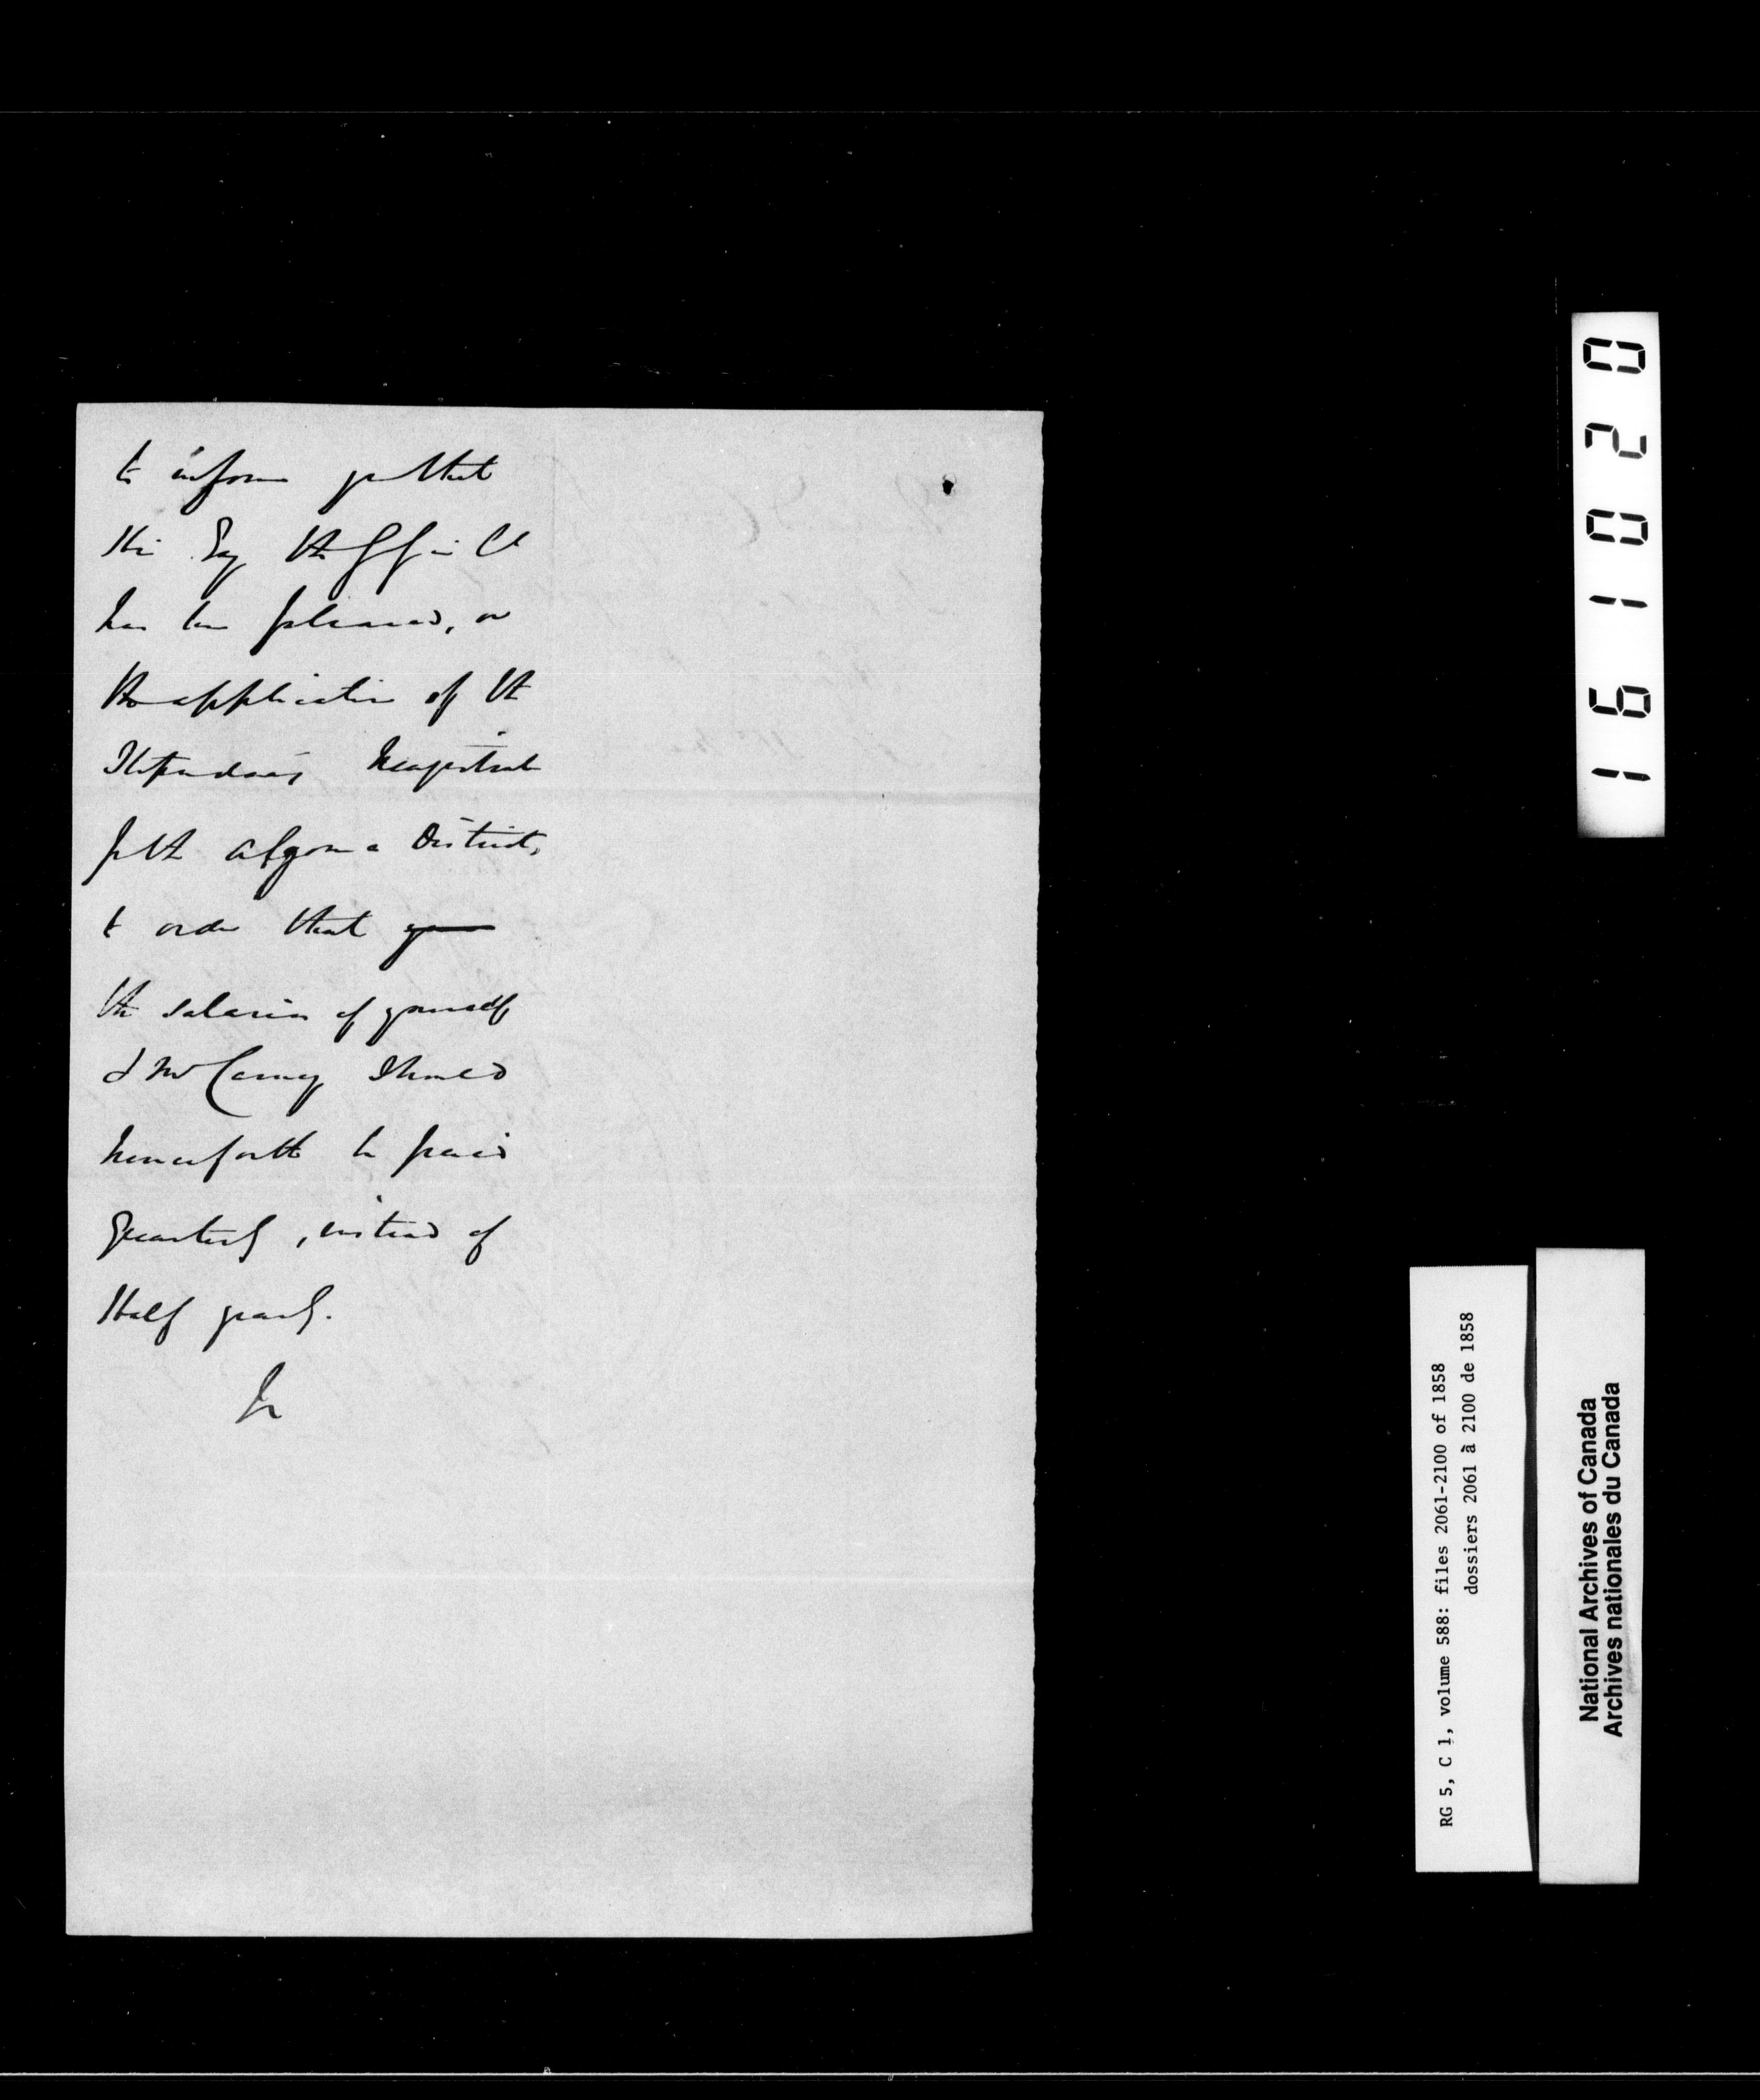 to inform you that
His Exy the GG in Cl
has been pleased, on
the application of the
Stipendiary Magistrate
for the Algoma District,
to order that your
the salaries of yourself
& Mr Carney should
henceforth be paid
Quarterly, instead of
Half yearly.
161020
RG 5, C 1, volume 588: files 2061-2100 of 1858
dossiers 2061 à 2100 de 1858
National Archives of Canada
Archives nationales du Canada